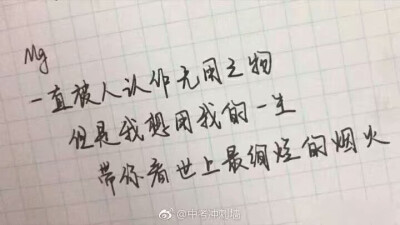 Mg
一直被人认作无用之物
但是我想用我的一生
带你看世上最绚烂的烟火